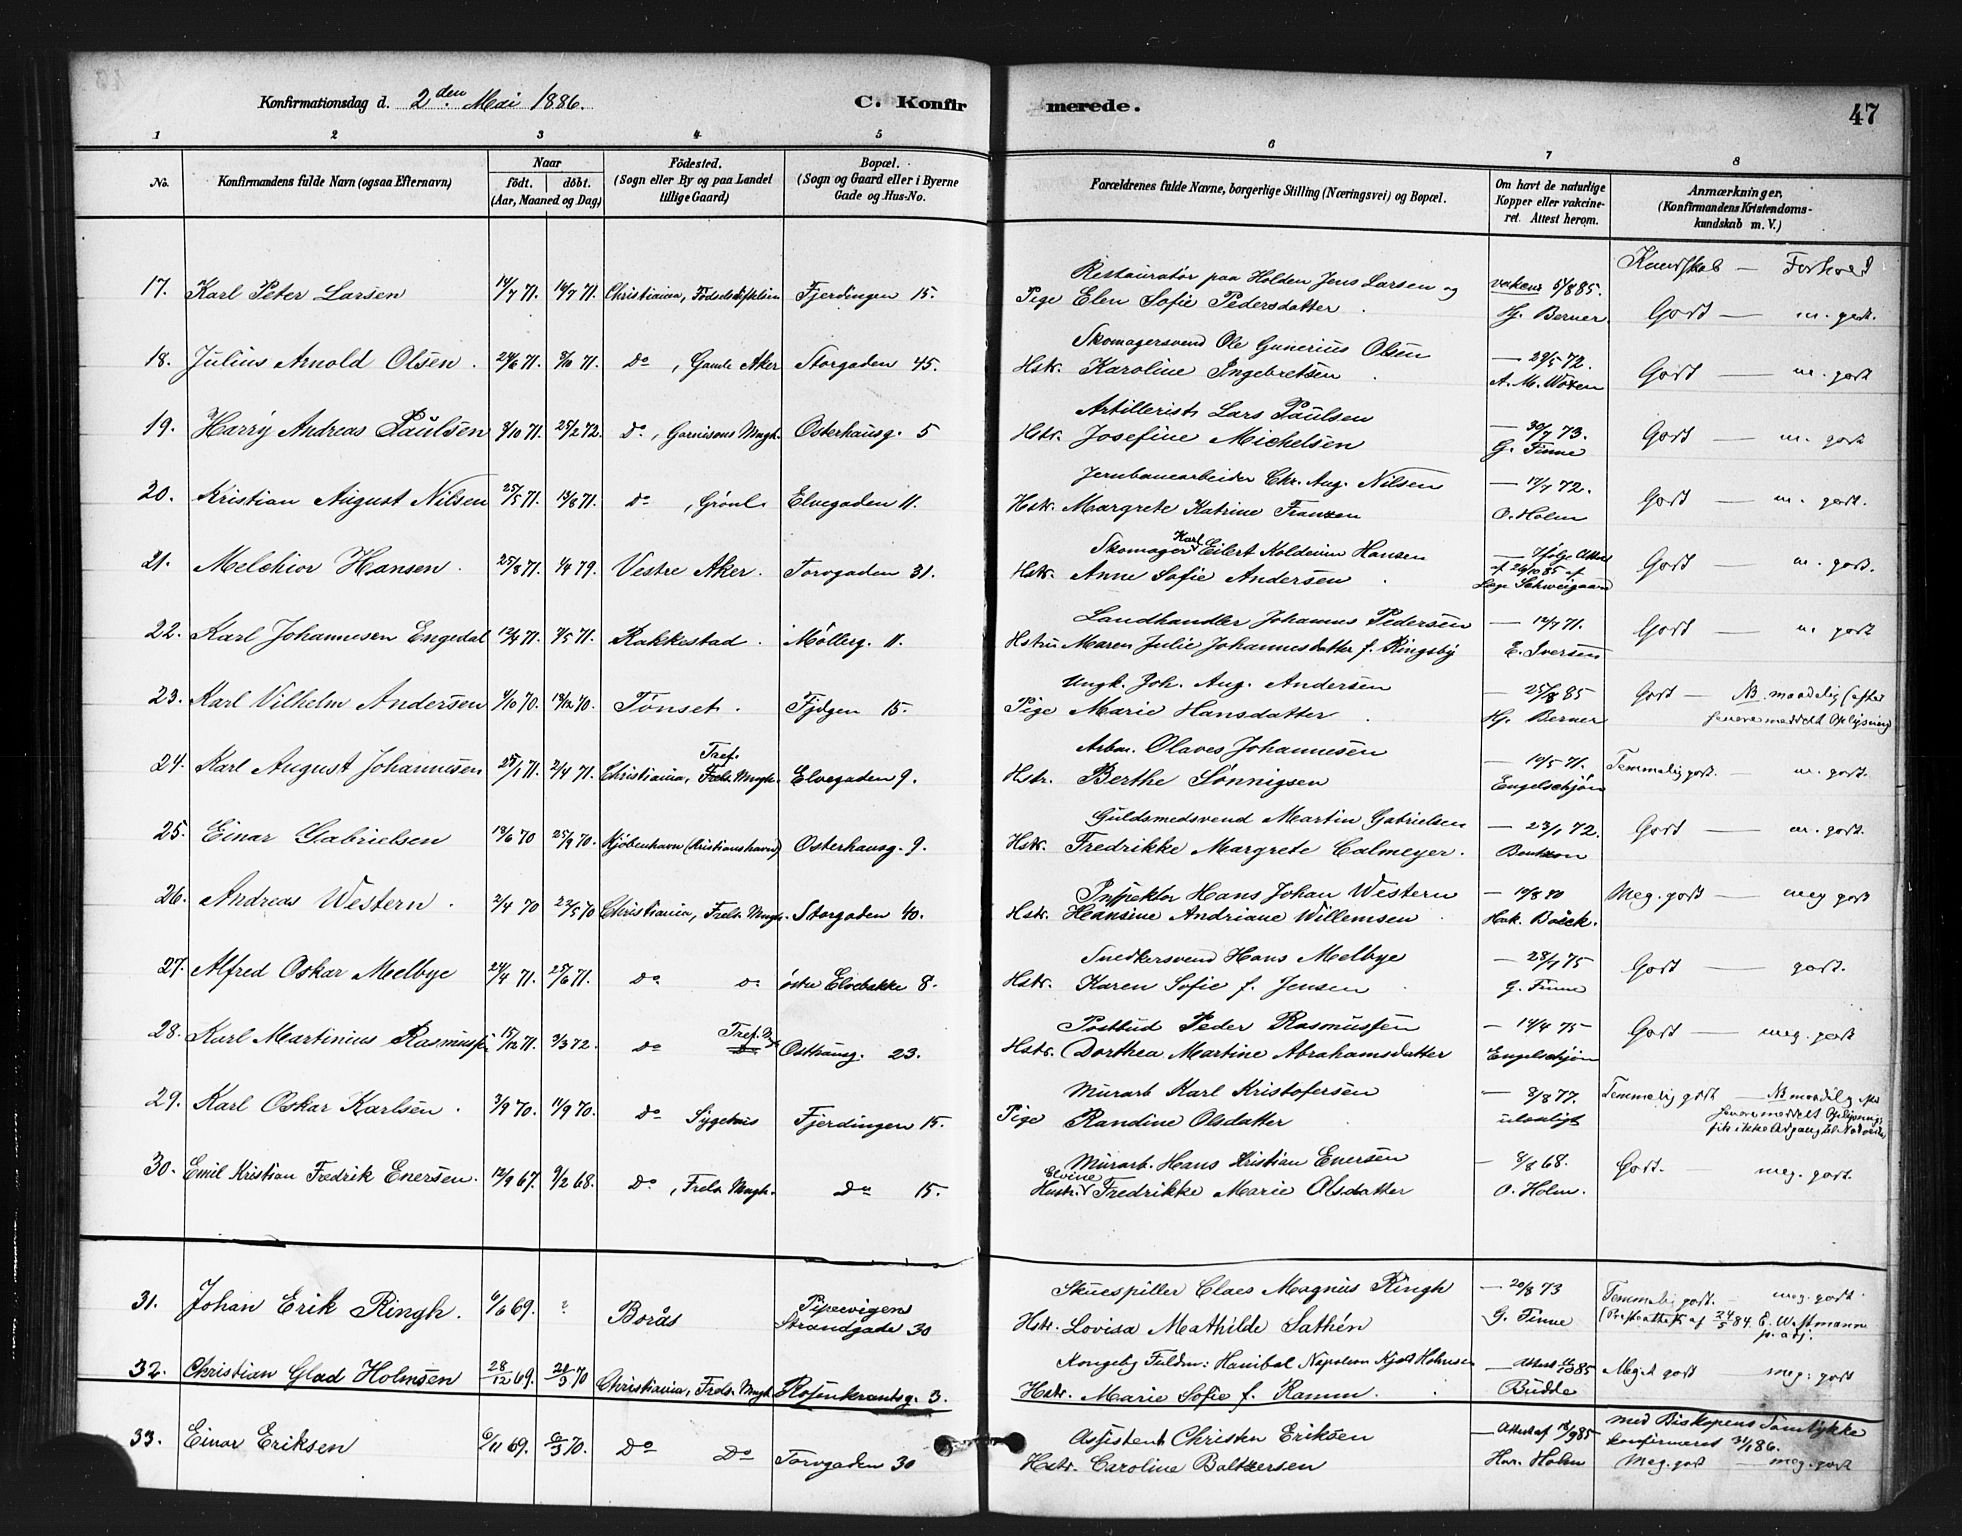 Konfirmationsdag d. 2den Mai 1886. C. Konfir merede. 47
1 2 3 4 5 6 7 8
No. Konfirmandens fulde Navn (ogsaa Efternavn) Naar födt. döbt. (Aar, Maaned og Dag) Födested. (Sogn eller By og paa Landet tillige Gaard) Bopæl. (Sogn og Gaard eller i Byerne Gade og Hus-No. Forældrenes fulde Navne, borgerlige Stilling (Næringsvei) og Bopæl. Om havt de naturlige Kopper eller vakcineret. Attest herom. Anmærkninger, (Konfirmandens Kristendomskundskab m. V.)
Kundskab — Forhold
17. Karl Peter Larsen 14/7 71. 14/7 71. Christiania, Fødselsstiftelsen Fjerdingen 15. Restauratør paa Holden Jens Larsen og
Pige Elen Sofie Pedersdatter. vakcins 5/8 85. Hj. Berner. Godt — m. godt.
18. Julius Arnold Olsen. 24/6 71. 8/10 71. Do, Gamle Aker Storgaden 45. Skomagersvend Ole Gunerius Olsen
Hstr. Karoline Ingebretsen. — 29/5 72. A. M. Woxen Godt — m. godt
19. Harry Andreas Paulsen 8/10 71. 25/2 72. Do, Garnisons Mngh. Osterhausg. 5 Artillerist Lars Paulsen
Hstr. Josefine Michelsen — 30/7 73. G. Finne Godt — m. godt
20. Kristian August Nilsen 25/5 71. 13/8 71. Do, Grønl. Elvegaden 11. Jernbanearbeider Chr. Aug. Nilsen
Hstr. Margrete Katrine Franzen — 17/7 72. O. Holm Godt — m. godt.
21. Melchior Hansen. 25/8 71. 1/4 79. Vestre Aker. Torvgaden 31. Skomager Karl Eilert Koldevin Hansen
Hstr. Anne Sofie Andersen. — Ifølge Attest af 26/10 85 af Læge Schweigaard Godt — m. godt.
22. Karl Johannesen Engedal 12/4 71. 7/5 71. Rakkestad. Møllerg. 11. Landhandler Johannes Pedersen
Hstru Maren Julie Johannesdatter f. Ringsby — 14/7 71. E. Iversen Godt — m. godt
23. Karl Vilhelm Andersen 4/10 70. 18/12 70. Tønset. Fjdgen 15. Ungk. Joh. Aug. Andersen
Pige Marie Hansdatter. — 25/8 85 Hj. Berner Godt — NB. maadelig (efter senere meddelt Oplysning)
24. Karl August Johannesen 25/1 71. 2/4 71. Christiania, Tref. Frels. Mngh. Elvegaden 9. Arbm. Olaves Johannesen
Hstr. Berthe Sønnigsen — 10/5 71. Engelschjøn Temmelig godt. — m. godt.
25. Einar Gabrielsen 13/6 70 25/9 70. Kjøbenhavn (Kristianshavn) Osterhausg. 9. Guldsmedsvend Martin Gabrielsen
Hstr. Fredrikke Margrete Calmeyer. — 23/1 72. Bentzen Godt — m. godt.
26. Andreas Western. 2/4 70 22/5 70 Christiania, Frels. Mngh. Storgaden 40. Inspektør Hans Johan Western
Hstr. Hansine Andriane Willemsen. — 10/8 70 Hak. Boeck. Meg. godt — meg godt
27. Alfred Oskar Melbye 24/4 71. 25/6 71. Do Do østre Elvebakke 8. Snedkersvend Hans Melbye
Hstr. Karen Sofie f. Jensen. — 28/7 75 G. Finne Godt — godt.
28. Karl Martinius Rasmussen 15/12 71. 3/3 72. Do Tref. Mgh. Do Osthausg. 23. Postbud Peder Rasmussen
Hstr. Dorthea Martine Abrahamsdatter — 14/4 75 Engelschjøn Godt — meg. godt
29. Karl Oskar Karlsen. 3/9 70. 11/9 70. Do Sygehus Fjerdingen 15. Murarb Karl Kristofersen
Pige Randine Olsdatter — 8/8 77. ulæseligt Temmelig godt — NB maadelig efter senere meddelt Oplysning, fik ikke Adgang til Nadverden
30. Emil Kristian Fredrik Enersen. 12/9 67. 9/2 68. Do, Frels. Mngh. Do 15. Murarb. Hans Kristian Enersen
Hustr. Elvine Fredrikke Marie Olsdatter — 8/8 68. O. Holm. Godt. — meg. godt.
31. Johan Erik Ringh. 6/6 69. ? Borås Pipervigen Strandgade 30 Skuespiller Claes Magnus Ringh
Hstr. Lovisa Mathilde Sathén — 20/8 73 G. Finne Temmelig godt. — meg. godt. (Presteattest af 24/5 84. E. Westmann p. adj.
32. Christian Glad Holmsen 28/12 69. 20/3 70 Christiania, Frels. Mngh. Rosenkrantsg. 3. Kongelig Fuldm: Hanibal Napoleon Holmsen
Hstr. Marie Sofie f. Ramm. — Attest 85 Budde Meget godt — meg: godt
33. Einar Eriksen 6/11 69. 6/3 70. Do Do Torvgaden 30 Assistent Christen Eriksen
Hstr. Caroline Baltzersen — Attest af 18/9 85 Hak. Holm med Biskopens Samtykke konfirmeret 31/1 86. Meg. godt — meg. godt